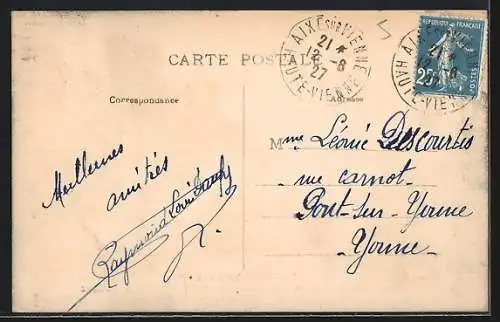 CARTE POSTALE
Correspondance
Adresse
AIXE SUR VIENNE
21 *
12 -8
27
HAUTE-VIENNE
REPUBLIQUE FRANÇAISE
25c
POSTES
Meilleures
amitiés
Raymond
Mme Léonie Descourtis
rue Carnot
Pont-sur-Yonne
Yonne